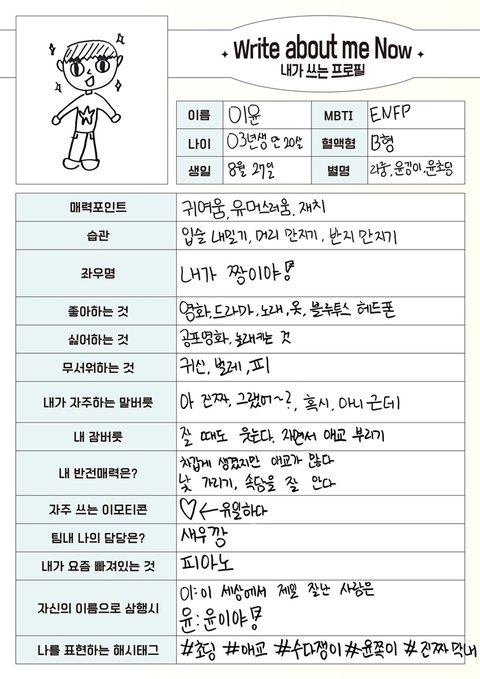 Write about me Now
내가 쓰는 프로필
이름 이윤 MBTI ENFP
나이 03년생 만 20살 혈액형 B형
생일 8월 27일 별명 라중, 윤깅이, 윤초딩
매력포인트 귀여움, 유머스러움, 재치
습관 입술 내밀기, 머리 만지기, 반지 만지기
좌우명 내가 짱이야!
좋아하는 것 영화, 드라마, 노래, 옷, 블루투스 헤드폰
싫어하는 것 공포영화, 놀래키는 것
무서워하는 것 귀신, 벌레, 피
내가 자주하는 말버릇 아 진짜, 그랬어~?, 혹시, 아니 근데
내 잠버릇 잘 때도 웃는다. 자면서 애교 부리기
내 반전매력은? 차갑게 생겼지만 애교가 많다
낯 가리기, 속담을 잘 안다
자주 쓰는 이모티콘 ♡ ← 유일하다
팀내 나의 담당은? 새우깡
내가 요즘 빠져있는 것 피아노
자신의 이름으로 삼행시 이: 이 세상에서 제일 잘난 사람은
윤: 윤이야!
나를 표현하는 해시태그 #초딩 #애교 #수다쟁이 #윤쪽이 #진짜 막내